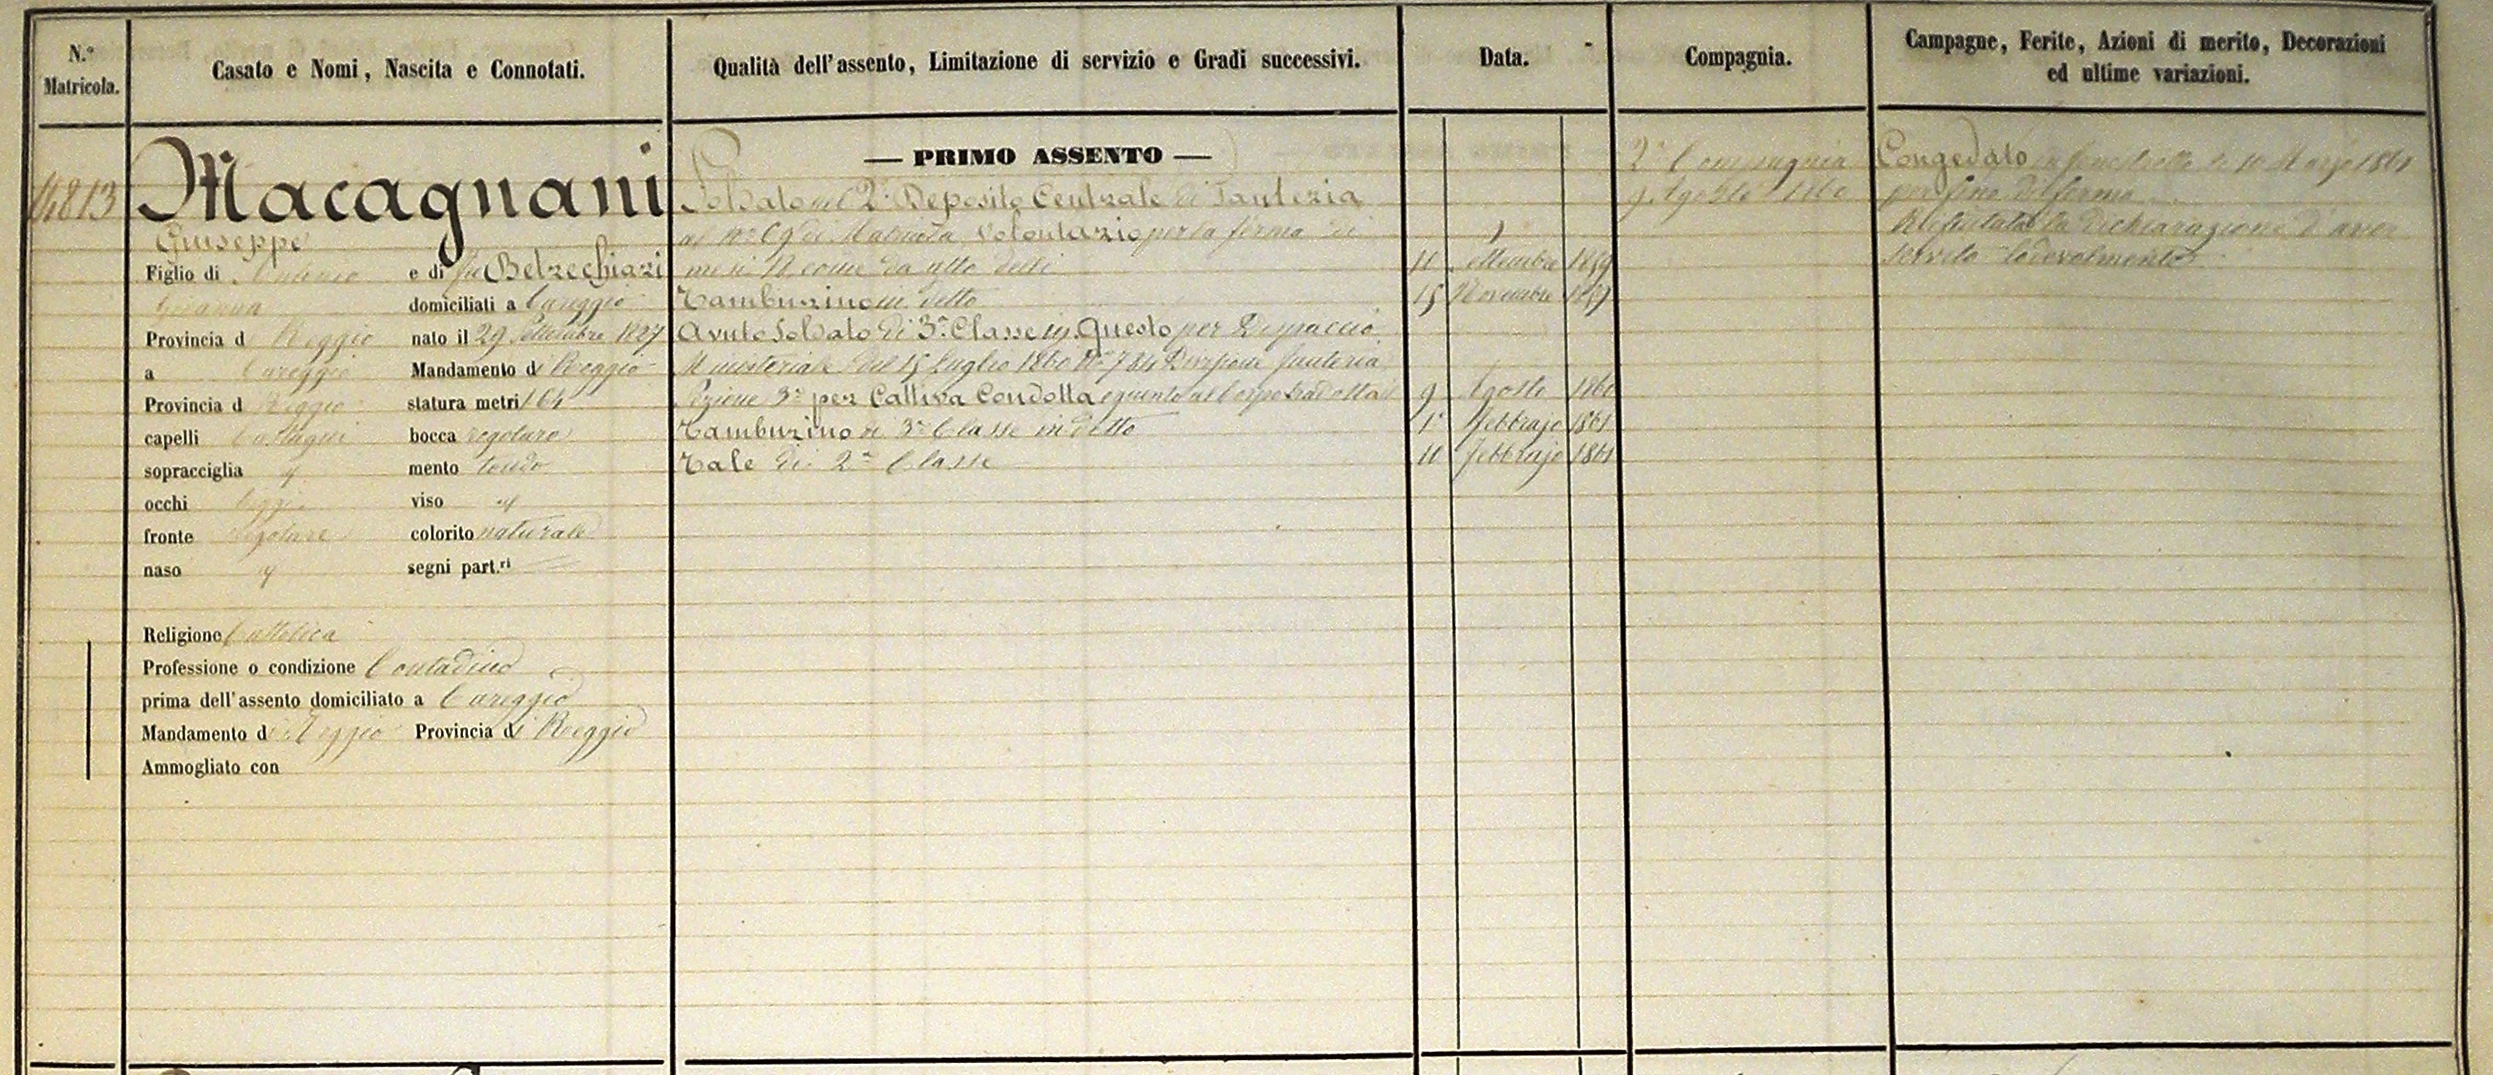 N.º Matricola.
Casato e Nomi, Nascita e Connotati.
Qualità dell'assento, Limitazione di servizio e Gradi successivi.
Data.
Compagnia.
Campagne, Ferite, Azioni di merito, Decorazioni
ed ultime variazioni.
4813
Macagnani
Giuseppe
Figlio di Antonio e di fu Belzechiari
Giovanna domiciliati a Careggio
Provincia di Reggio nato il 29 Settembre 1827
a Careggio Mandamento di Reggio
Provincia di Reggio statura metri 1 64
capelli Castagni bocca regolare
sopracciglia id mento tondo
occhi bigi viso id
fronte regolare colorito naturale
naso id segni part.ri
Religione Cattolica
Professione o condizione Contadino
prima dell'assento domiciliato a Careggio
Mandamento di Reggio Provincia di Reggio
Ammogliato con
— PRIMO ASSENTO —
Soldato nel 2º Deposito Centrale di Fanteria
al Nº 69 di Matricola Volontario per la ferma di
mesi 18 come da atto delli 10 Settembre 1859
Tamburino in detto 15 Novembre 1859
Avuto Soldato di 3ª Classe in Questo per Dispaccio
Ministeriale del 15 Luglio 1860 Nº 784 Divisione fanteria
Sezione 3ª per Cattiva Condotta e giunto al Corpo 9 Agosto 1860
Tamburino di 3ª Classe in detto 1º Febbrajo 1861
Tale di 2ª Classe 10 Febbrajo 1861
2ª Compagnia
9 Agosto 1860
Congedato in Fenestrelle li 10 Marzo 1861
per fine di ferma
Rifiutata la dichiarazione d'aver
servito lodevolmente